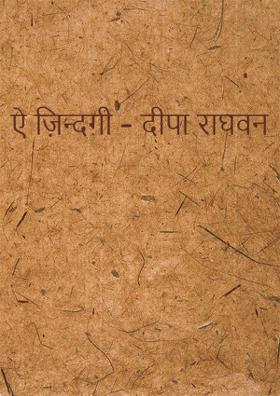 ऐ ज़िन्दगी - दीपा राघवन